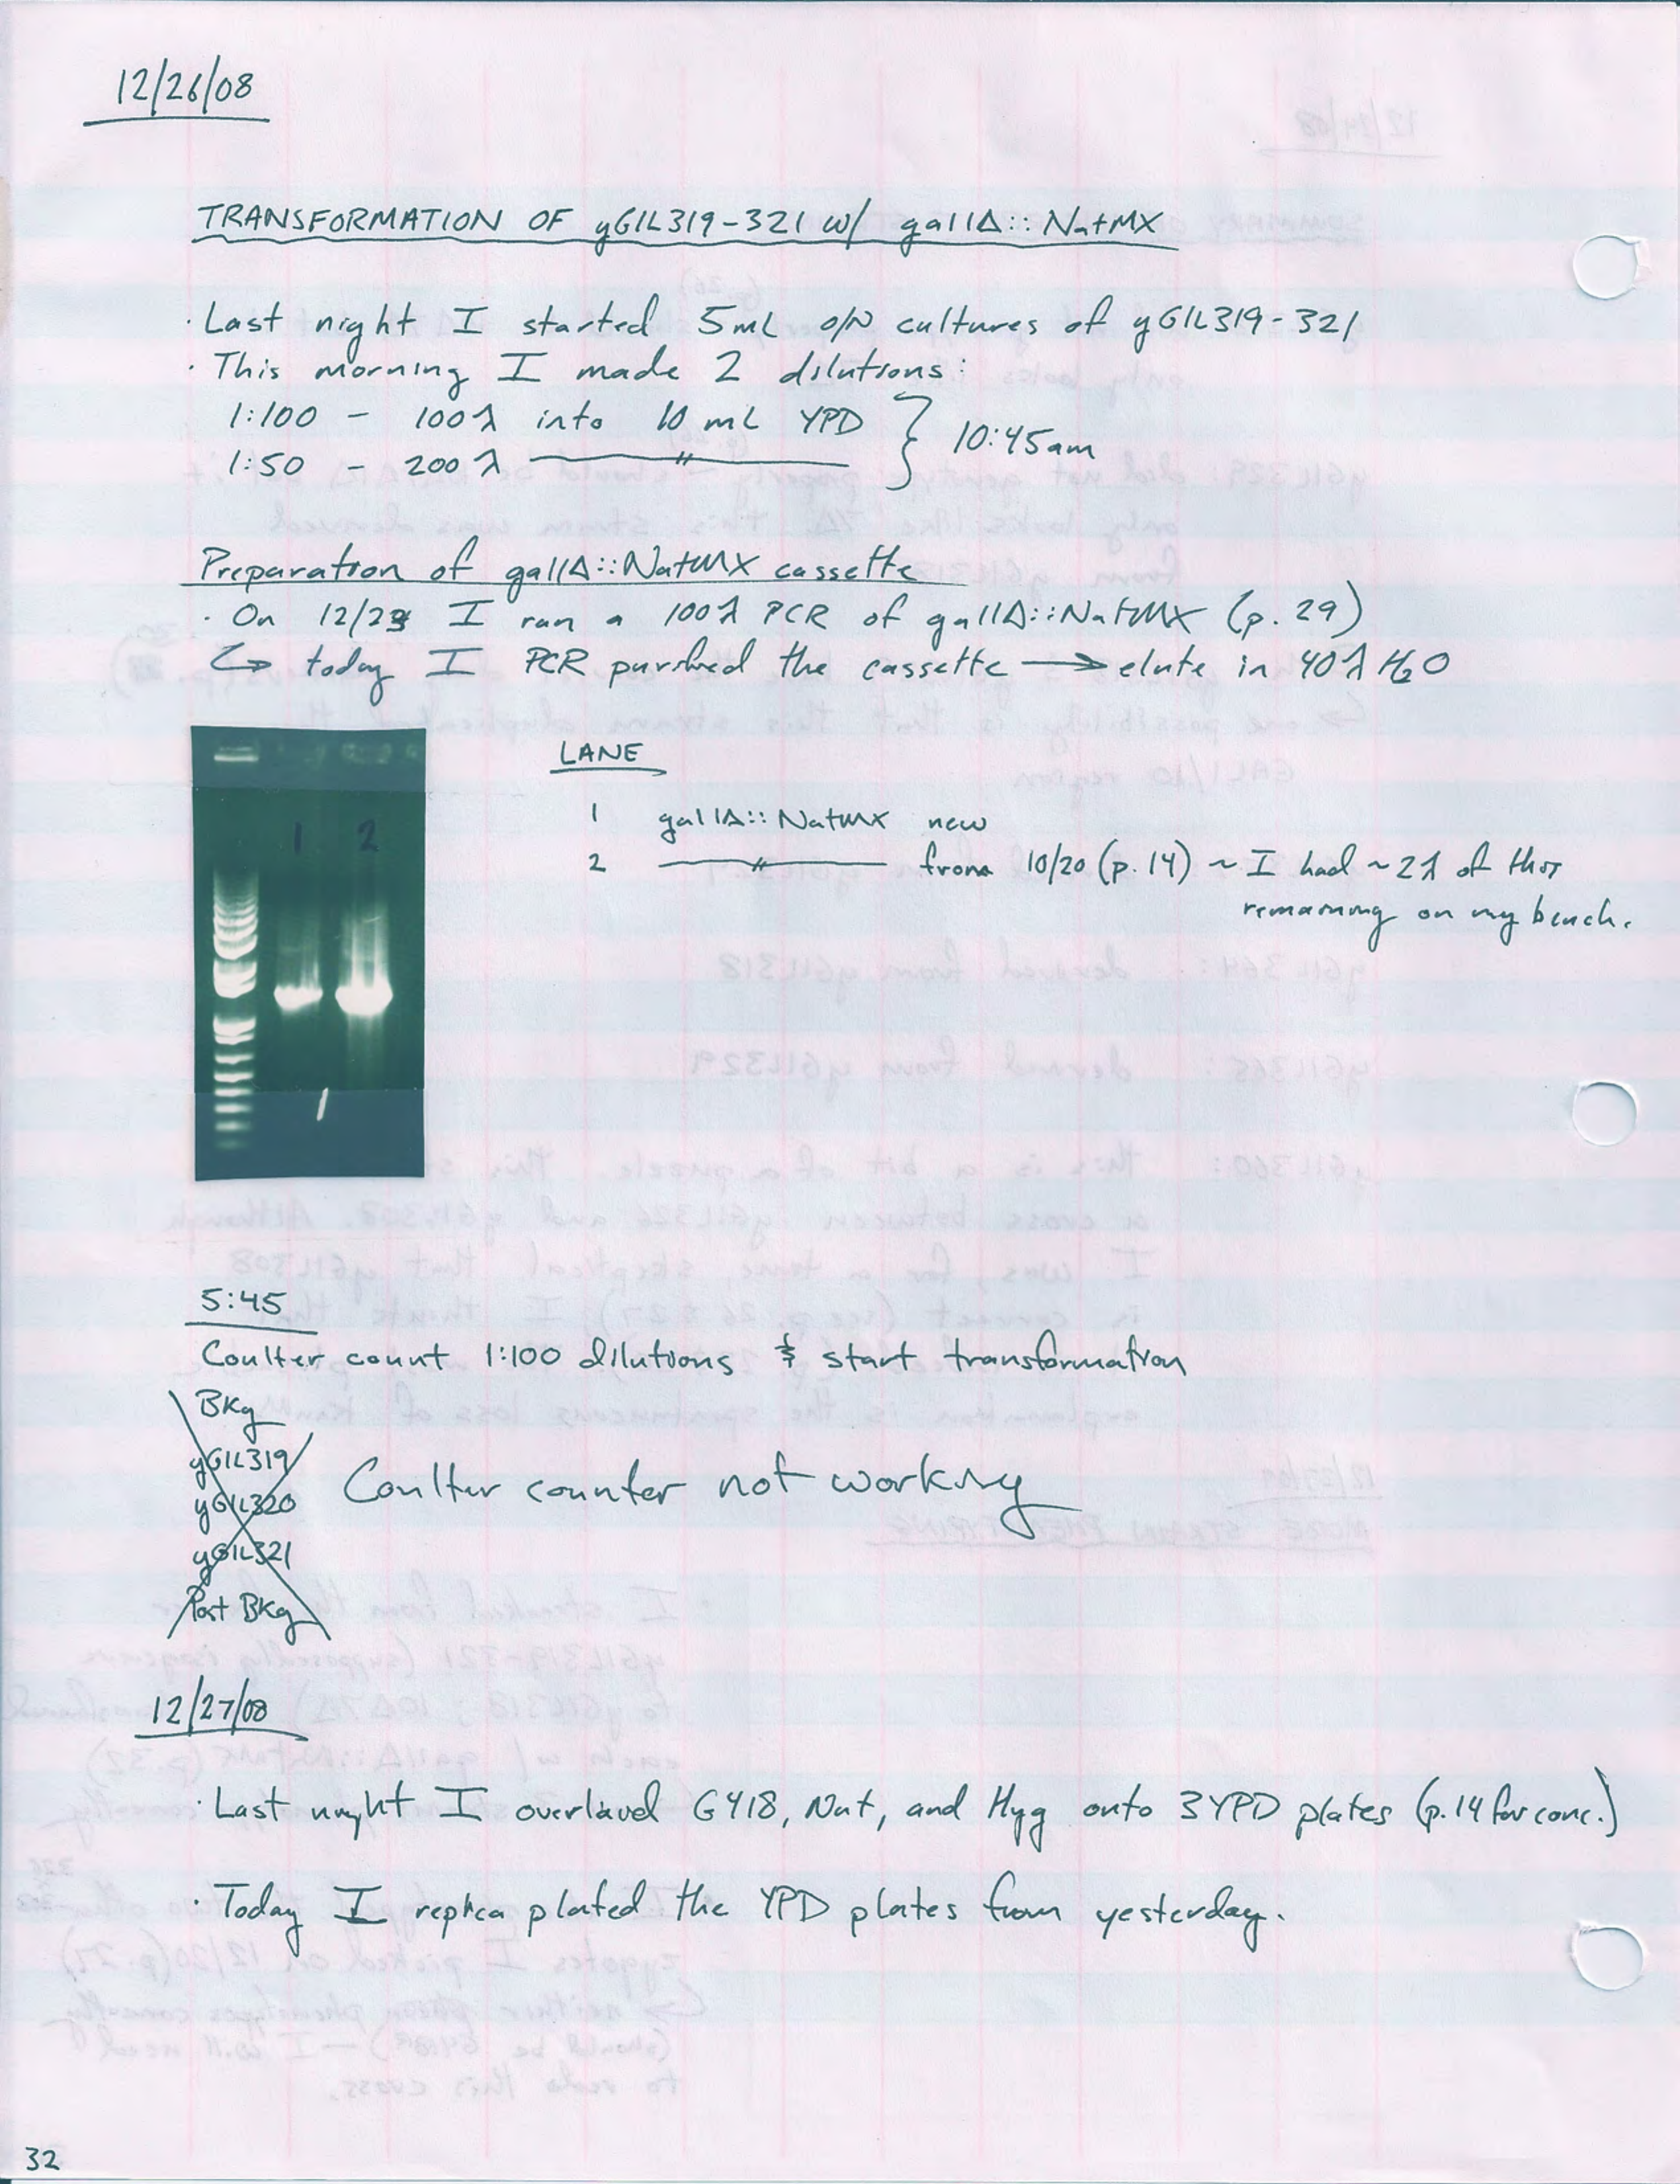 12/26/08
TRANSFORMATION OF yGIL319-321 w/ gal1Δ::NatMX
· Last night I started 5mL o/N cultures of yGIL319-321
· This morning I made 2 dilutions:
1:100 - 100λ into 10 mL YPD } 10:45am
1:50 - 200λ —〃—
Preparation of gal1Δ::NatMX cassette
· On 12/23 I ran a 100λ PCR of gal1Δ::NatMX (p. 29)
↳ today I PCR purified the cassette → elute in 40λ H₂O
LANE
1 gal1Δ::NatMX new
2 —〃— from 10/20 (p. 14) ~ I had ~2λ of this
remaining on my bench.
1 2
5:45
Coulter count 1:100 dilutions & start transformation
BKg
yGIL319
yGIL320
yGIL321
Post BKg
Coulter counter not working
12/27/08
· Last night I overlaid G418, Nat, and Hyg onto 3 YPD plates (p. 14 for conc.)
· Today I replica plated the YPD plates from yesterday.
32